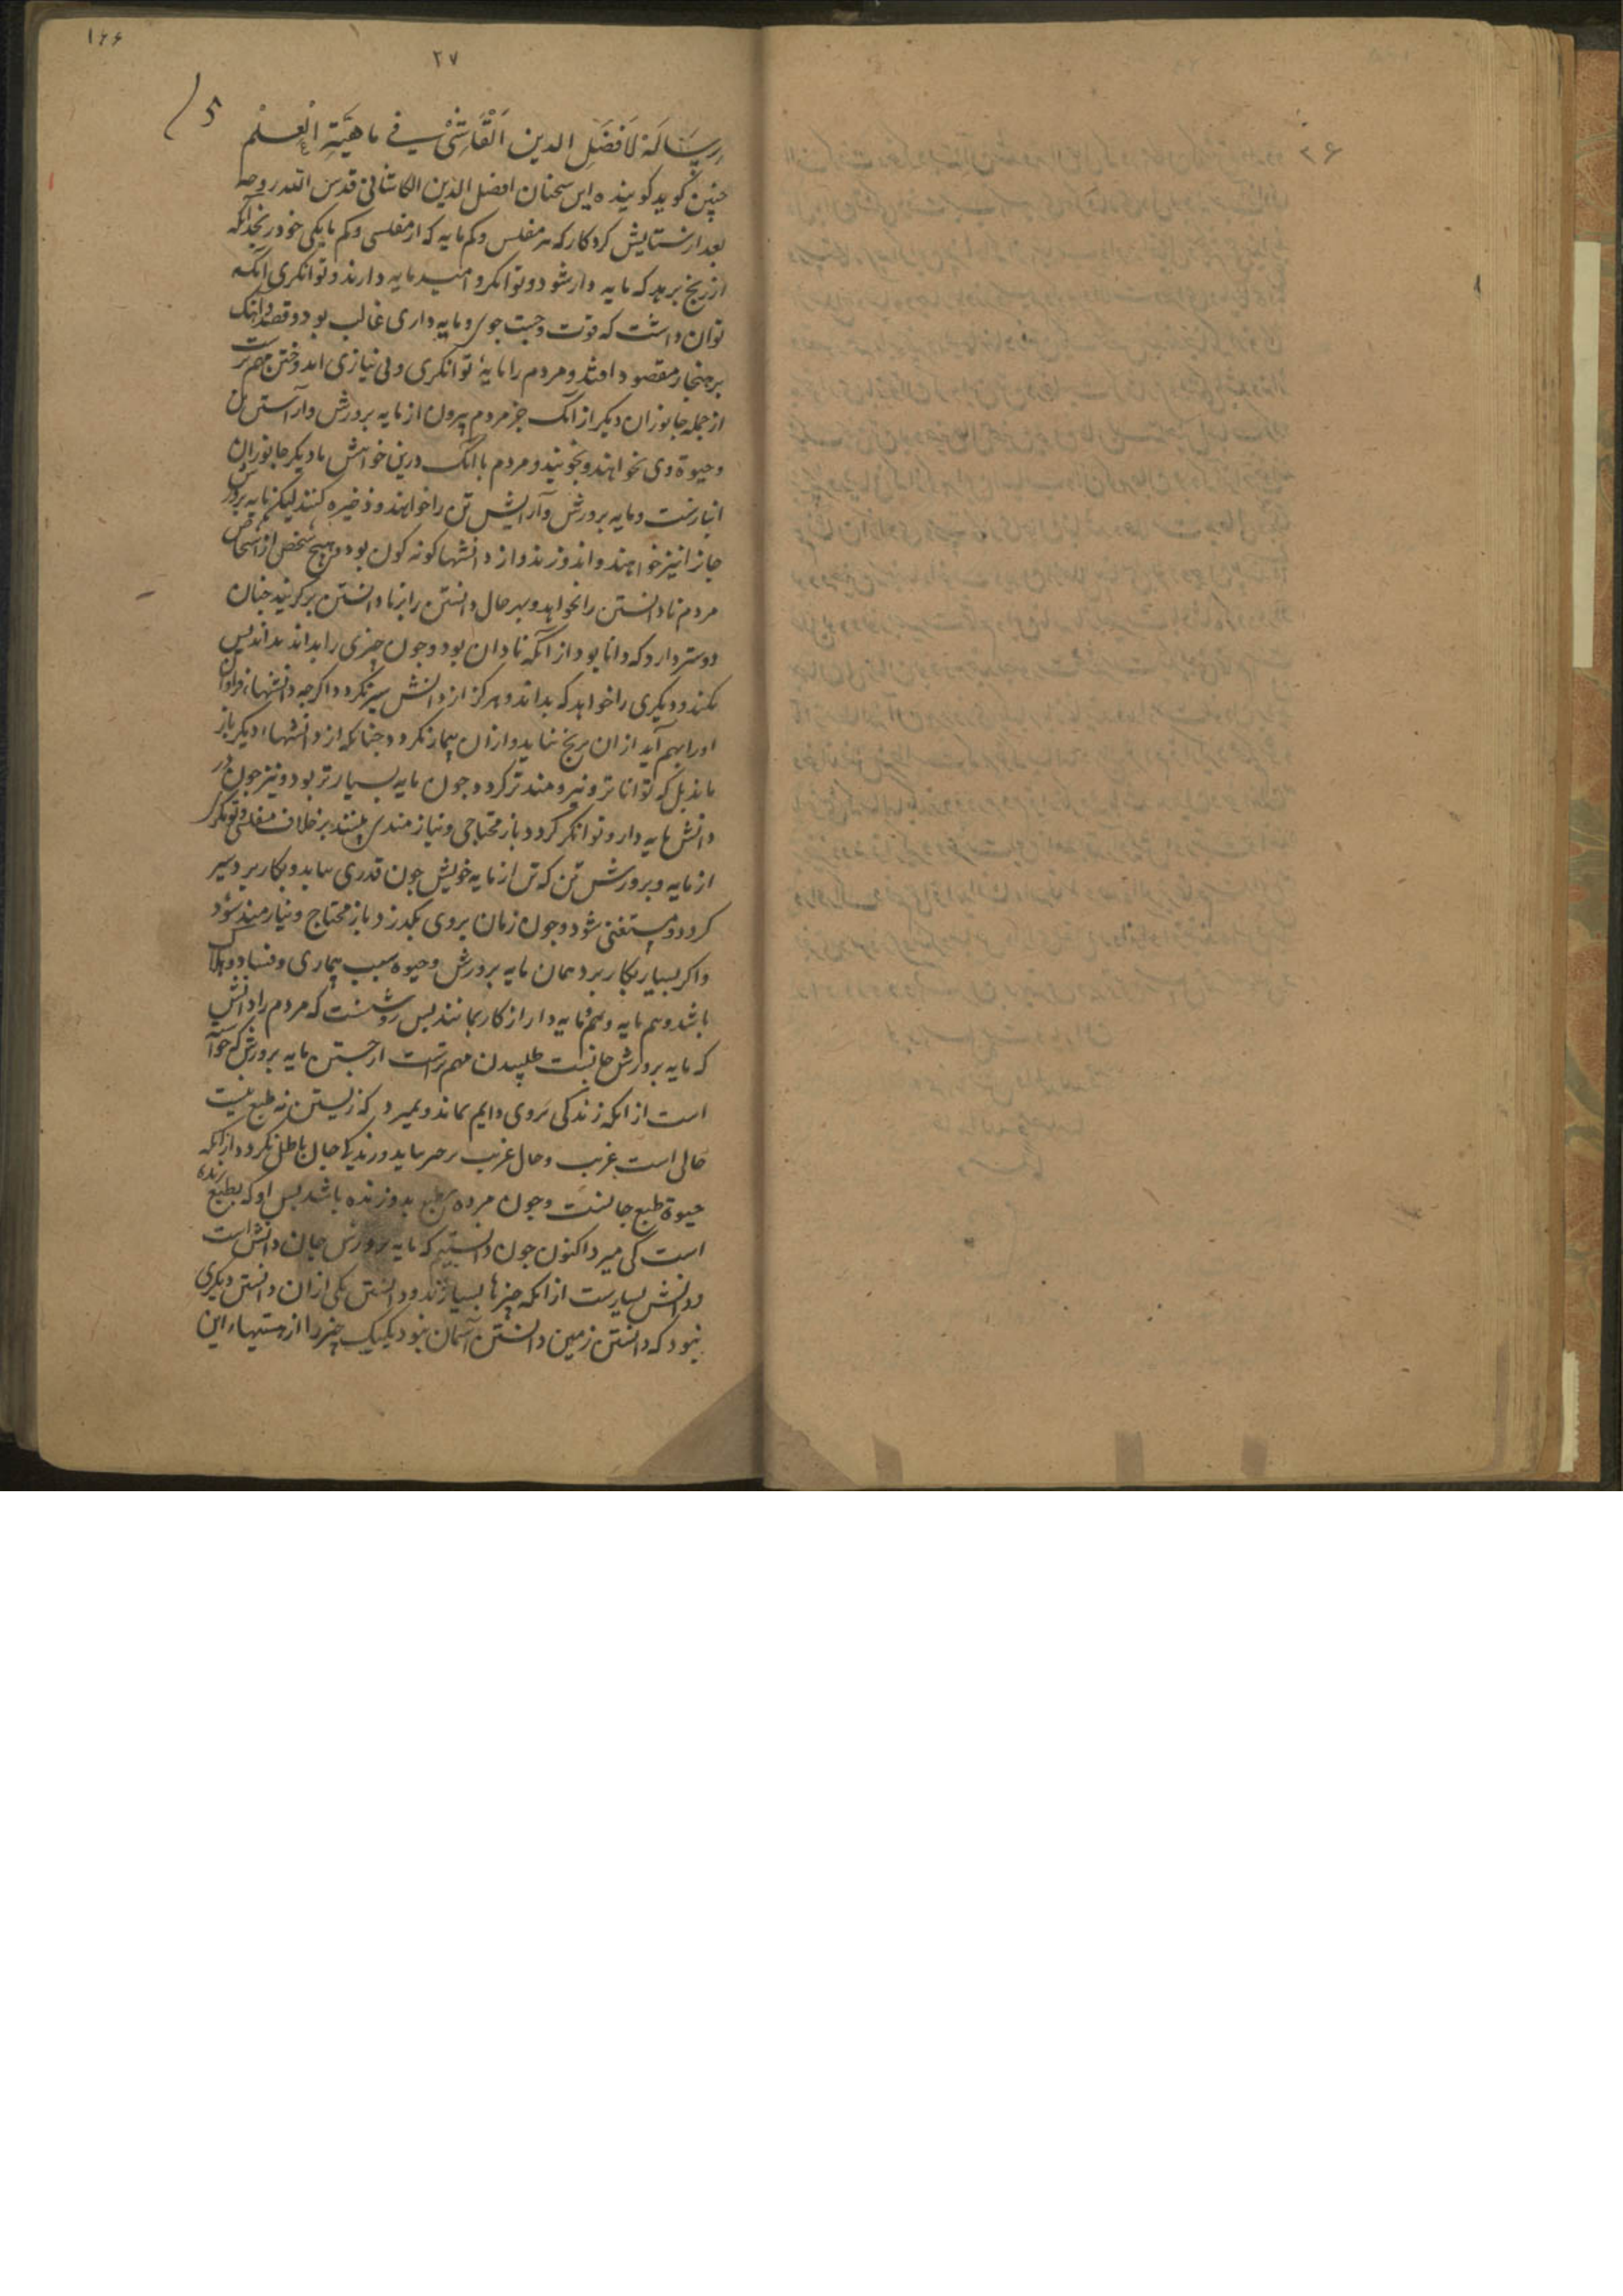 ۱۶۶
۲۷
۲۶
رِسَالَة لَافضَلِ الدین اَلْقَاشِیْ فے ماهیَّةِ الْعِلْم
چنین کوید کوینده این سخنان افضل الدین الکاشانی قدس الله روحه
بعد از ستایش کردکار که هر مفلس و کم مایه که از مفلسی و کم مایکی خود رنجد آنکه
از رنج برهد که مایه دار شود و توانکر و امید مایه دارند و توانکری آنکه
توان داشت که قوت و جست جوی و مایه داری غالب بود و قصد و آهنک
بر هنجار مقصود افتد و مردم را مایهٔ توانکری و بی نیازی اندوختن مهم ترست
از جمله جانوران دیکر از آنک جز مردم بیرون از مایه پرورش و آراستن تن
و حیوة وی نخواهند و نجویند و مردم با آنک درین خواهش با دیکر جانوران
انبازست و مایه پرورش و آرایش تن را خواهند و ذخیره کنند لیکن مایه پرورش
جانرا نیز خواهند و اندوزند و از دانشها کونه کون بود و هیچ شخص از اشخاص
مردم نادانستن را نخواهد و بهر حال دانستن را بر نادانستن برکزیند چنان
دوستر دارد که دانا بود از آنکه نادان بود و چون چیزی را بداند بدان بس
نکند و دیکری را خواهد که بداند و هرکز از دانش سیر نکردد اکرچه دانشها فراوان
اورا بهم آید از ان برنج نیاید و ازان بیمار نکردد چنانکه از دانشهاء دیکر باز
ماند بل که توانا تر و نیرومند تر کردد چون مایه بسیار تر بود و نیز چون در
دانش مایه دار و توانکر کردد باز محتاجی و نیازمندی نبیند بر خلاف مفلسی و توانکری
از مایه و پرورش تن که تن از مایه خویش چون قدری بیابد و بکار برد سیر
کردد و مستغنی شود و چون زمان بروی بکذرد باز محتاج و نیازمند شود
و اکر بسیار بکار برد همان مایه پرورش و حیوة سبب بیماری و فساد و هلاک
باشد و هم مایه و هم مایه دار از کار بمانند بس روشنست که مردم را دانش
که مایه پرورش جانست طلبیدن مهم ترست از جستن مایه پرورش که حوآ
است از آنکه زندکی بروی دایم نماند و بمیرد که زیستن نه طبع نیست
حالی است غریب و حال غریب بر جای نیاید و زندکی جان باطل نکردد از آنکه
حیوة طبع جانست و چون مرده بطبع بدو زنده باشد بس او که بطبع زنده
است کی میرد اکنون چون دانستیم که مایه پرورش جان دانش است
و دانش بسیارست از آنکه چیزها بسیارند و دانستن یکی از ان دانستن دیکری
نبود که دانستن زمین دانستن آسمان نبود یکیک چیز را از هستیهاء این